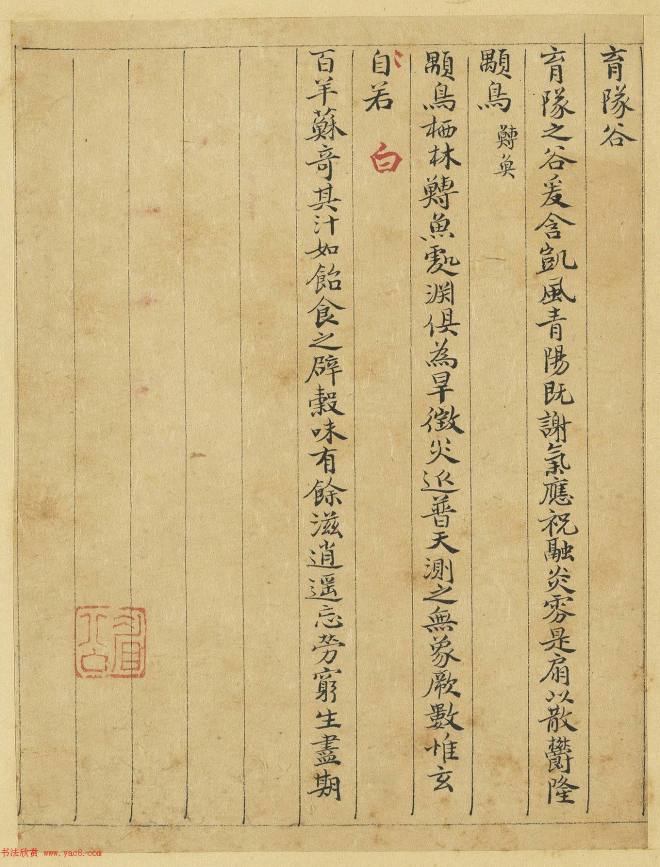 育隊谷
育隊之谷爰含凱風青陽既謝氣應祝融炎雰是扇以散鬱隆
顒鳥 鱄奠
顒鳥栖林鱄魚處淵俱為旱徵災延普天測之無象厥數惟玄
自若 白
百羊蘇奇其汁如飴食之辟穀味有餘滋逍遥忘勞窮生盡期
书法欣赏 www.yac8.com